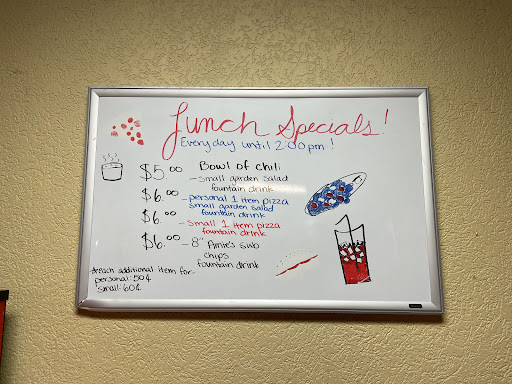 Lunch Specials!
Everyday until 2:00pm!
$5.00 Bowl of chili
- small garden salad
fountain drink
$6.00 - personal 1 item pizza
small garden salad
fountain drink
$6.00 - Small 1 item pizza
fountain drink
$6.00 - 8" Arnie's sub
chips
fountain drink
*each additional item for..
personal: 50¢
small: 60¢